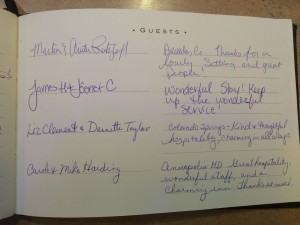 · GUESTS ·
Martin &
Thanks for a
lovely setting and great
people
James H & Joanot C
Wonderful Stay! Keep
up the wonderful
service!
Liz Clement & Danette Taylor
Colorado Springs - Kind & thoughtful
hospitality, charming in all ways
Carole & Mike Harding
Annapolis MD Great hospitality,
wonderful staff, and a
charming inn. Thanks so much